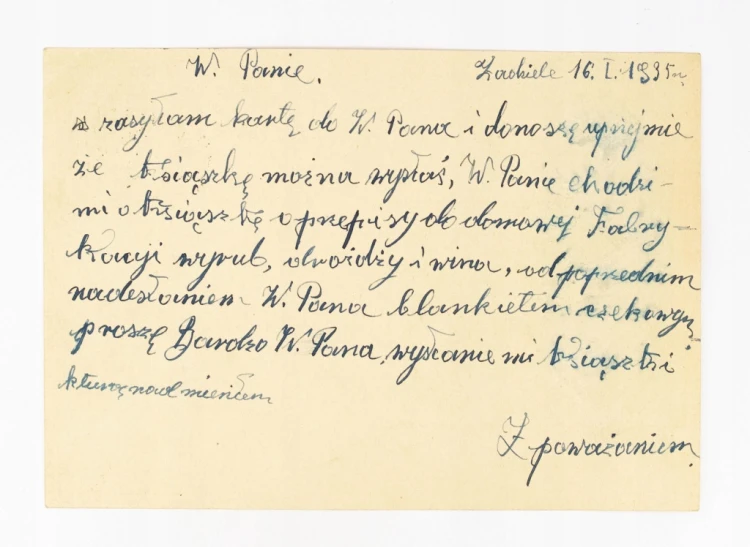 W. Panie.
Zachiele 16. I. 1935 r.
zasyłam kartę do W. Pana i donoszę uprzejmie
że ksiąszkę można wysłaś, W. Panie chodzi-
mi o ksiąszkę o przepisy do domowej Fabry-
kacyji wyrub, drożdży i wina, od poprzednim
nadesłaniem W. Pana blankietem czekowym
proszę Bardzo W. Pana, wysłanie mi ksiąszki
kturą nadmieniłem
Z poważaniem.